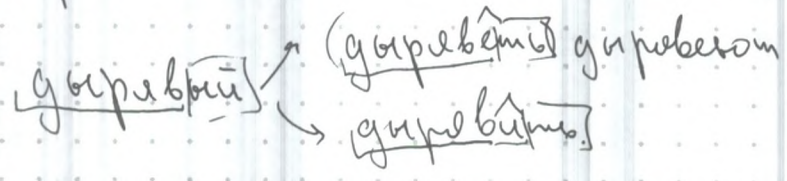 дырявый
(дыряветь) дыровеют
дырявить